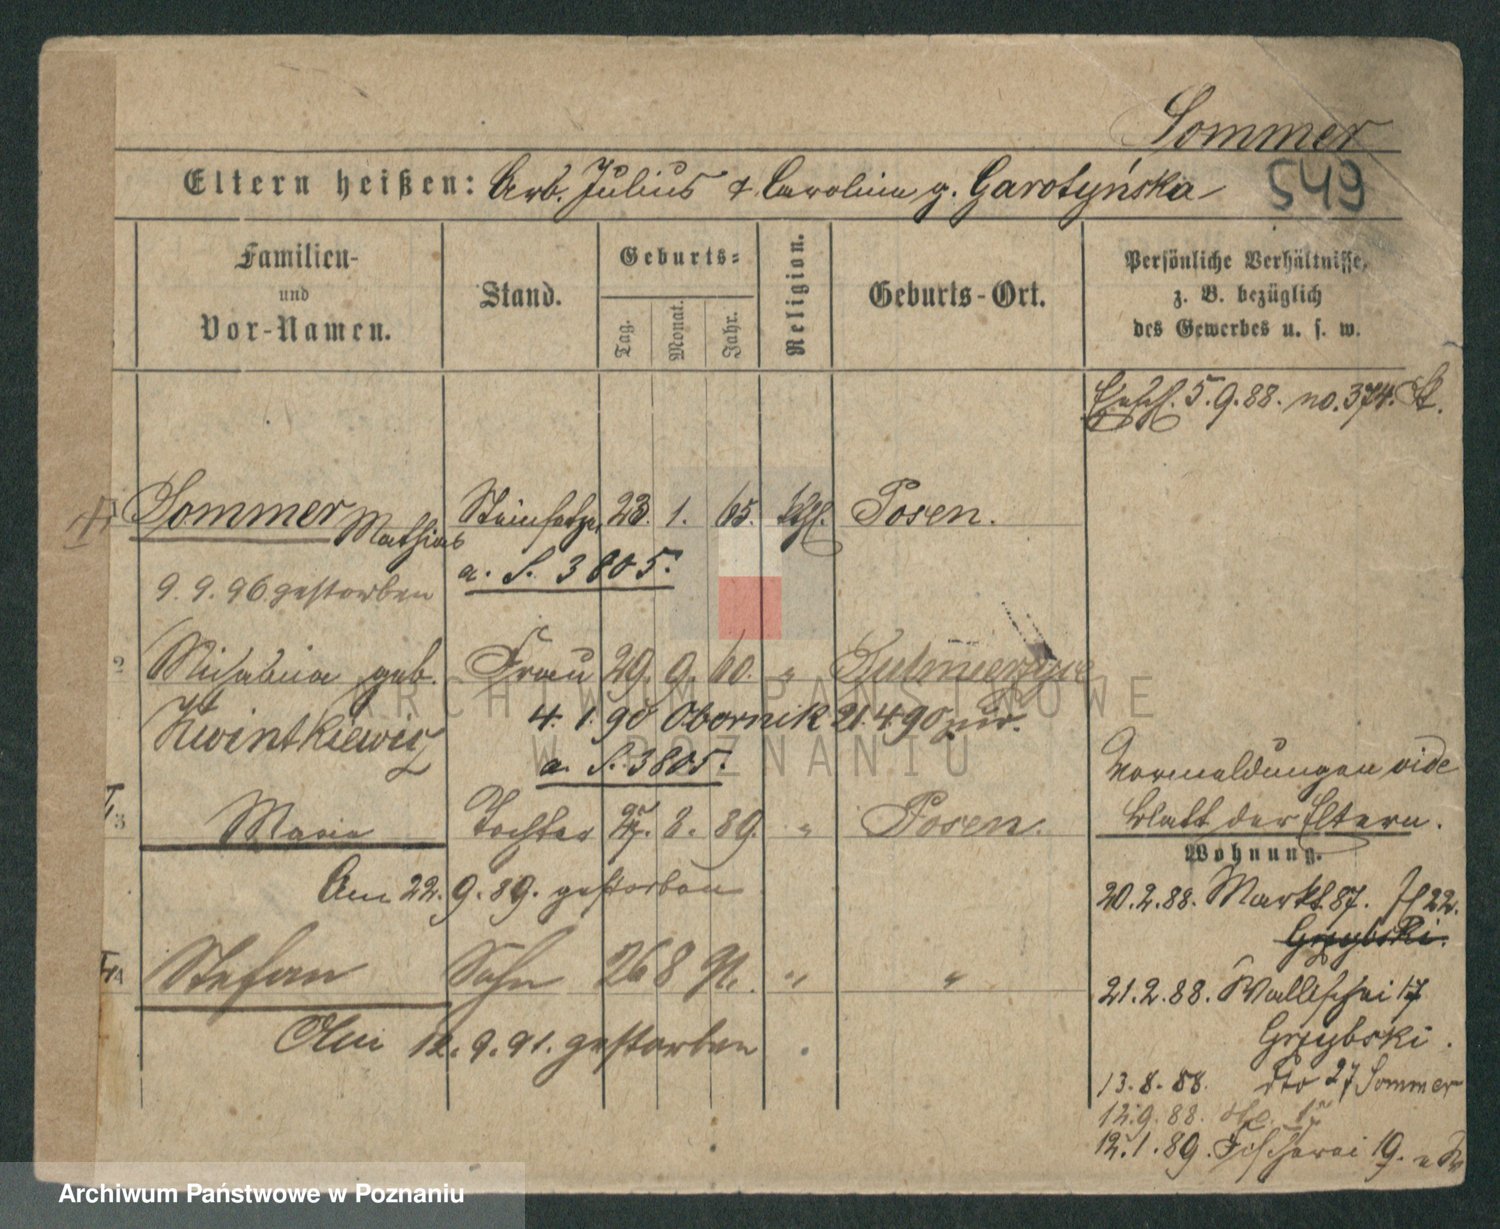 Sommer
Eltern heißen: Arb. Julius & Carolina g. Garotyńska
549
Familien-
und
Vor-Namen.
Stand.
Geburts-
Tag.
Monat.
Jahr.
Religion.
Geburts-Ort.
Persönliche Verhältnisse,
z. B. bezüglich
des Gewerbes u. s. w.
5.9.88. no. 374. St.
Sommer Mathias Steinsetzer 23. 1. 65. kth. Posen.
a. S. 3805.
9. 9. 96 gestorben
2 geb. Frau 29. 9. 60. "
Kwintkiewicz
4. 1. 90 Obornik 21. 4. 90 zur.
a. S. 3805.
Vermeldungen vide
Blatt der Eltern.
3 Maria Tochter 8. 89. " Posen.
Am 22. 9. 89. gestorben
Wohnung.
20. 2. 88. Markt 87. 22.
Grzybski.
4 Stefan Sohn 26 8 91. " "
Am 12. 9. 91. gestorben
21. 2. 88. Wallischei 17
Grzybski.
13. 8. 88. dto 27 Sommer
12. 9. 88.
12. 1. 89. Fischerei 19.
ARCHIWUM PAŃSTWOWE
W POZNANIU
Archiwum Państwowe w Poznaniu